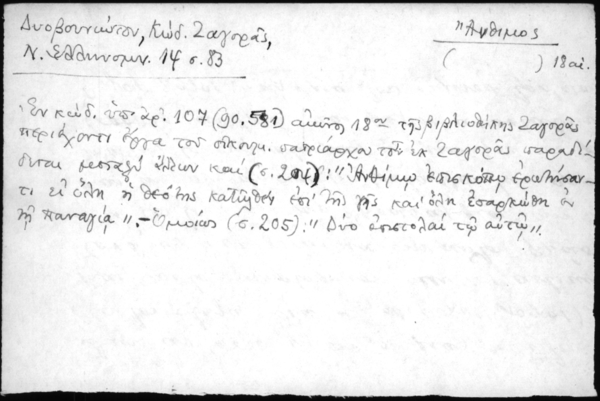 Δυοβουνιώτου, Κώδ. Ζαγορᾶς,
Ν. Ἑλληνομν. 14 σ. 83
Ἄνθιμος
( ) 18 αἰ.
Ἐν κώδ. ὑπ' ἀρ. 107 (90.581) αἰῶνος 18ου τῆς βιβλιοθήκης Ζαγορᾶς
περιέχοντι ἔργα τοῦ οἰκουμ. πατριάρχου τοῦ ἐκ Ζαγορᾶς παραδί-
δεται μεταξὺ ἄλλων καὶ (σ. 204): "Ἀνθίμῳ ἐπισκόπῳ ἐρωτήσαν-
τι εἰ ὅλη ἡ θεότης κατῆλθεν ἐπὶ τῆς γῆς καὶ ὅλη ἐσαρκώθη ἐν
τῇ παναγίᾳ". – Ὁμοίως (σ. 205): "Δύο ἐπιστολαὶ τῷ αὐτῷ".